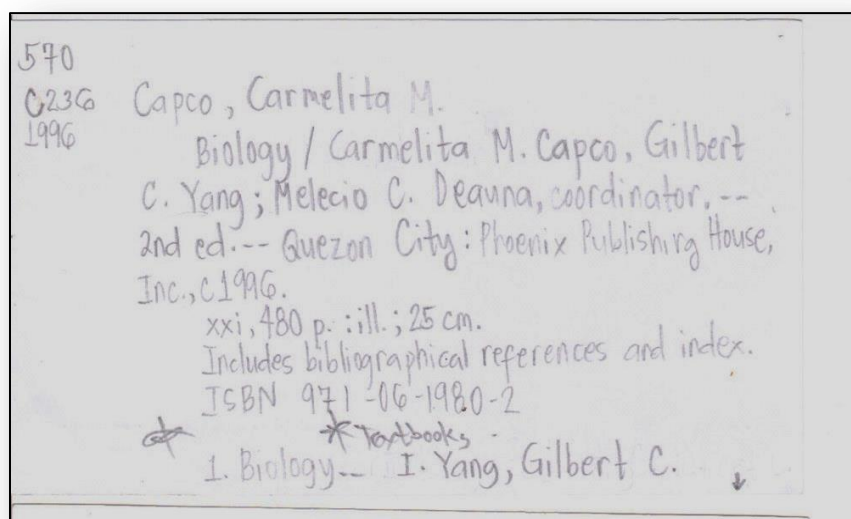 570
C236
1996
Capco, Carmelita M.
Biology / Carmelita M. Capco, Gilbert
C. Yang; Melecio C. Deauna, coordinator. --
2nd ed. -- Quezon City: Phoenix Publishing House,
Inc., c1996.
xxi, 480 p. : ill.; 25 cm.
Includes bibliographical references and index.
ISBN 971-06-1980-2
* Textbooks
1. Biology-- I. Yang, Gilbert C.